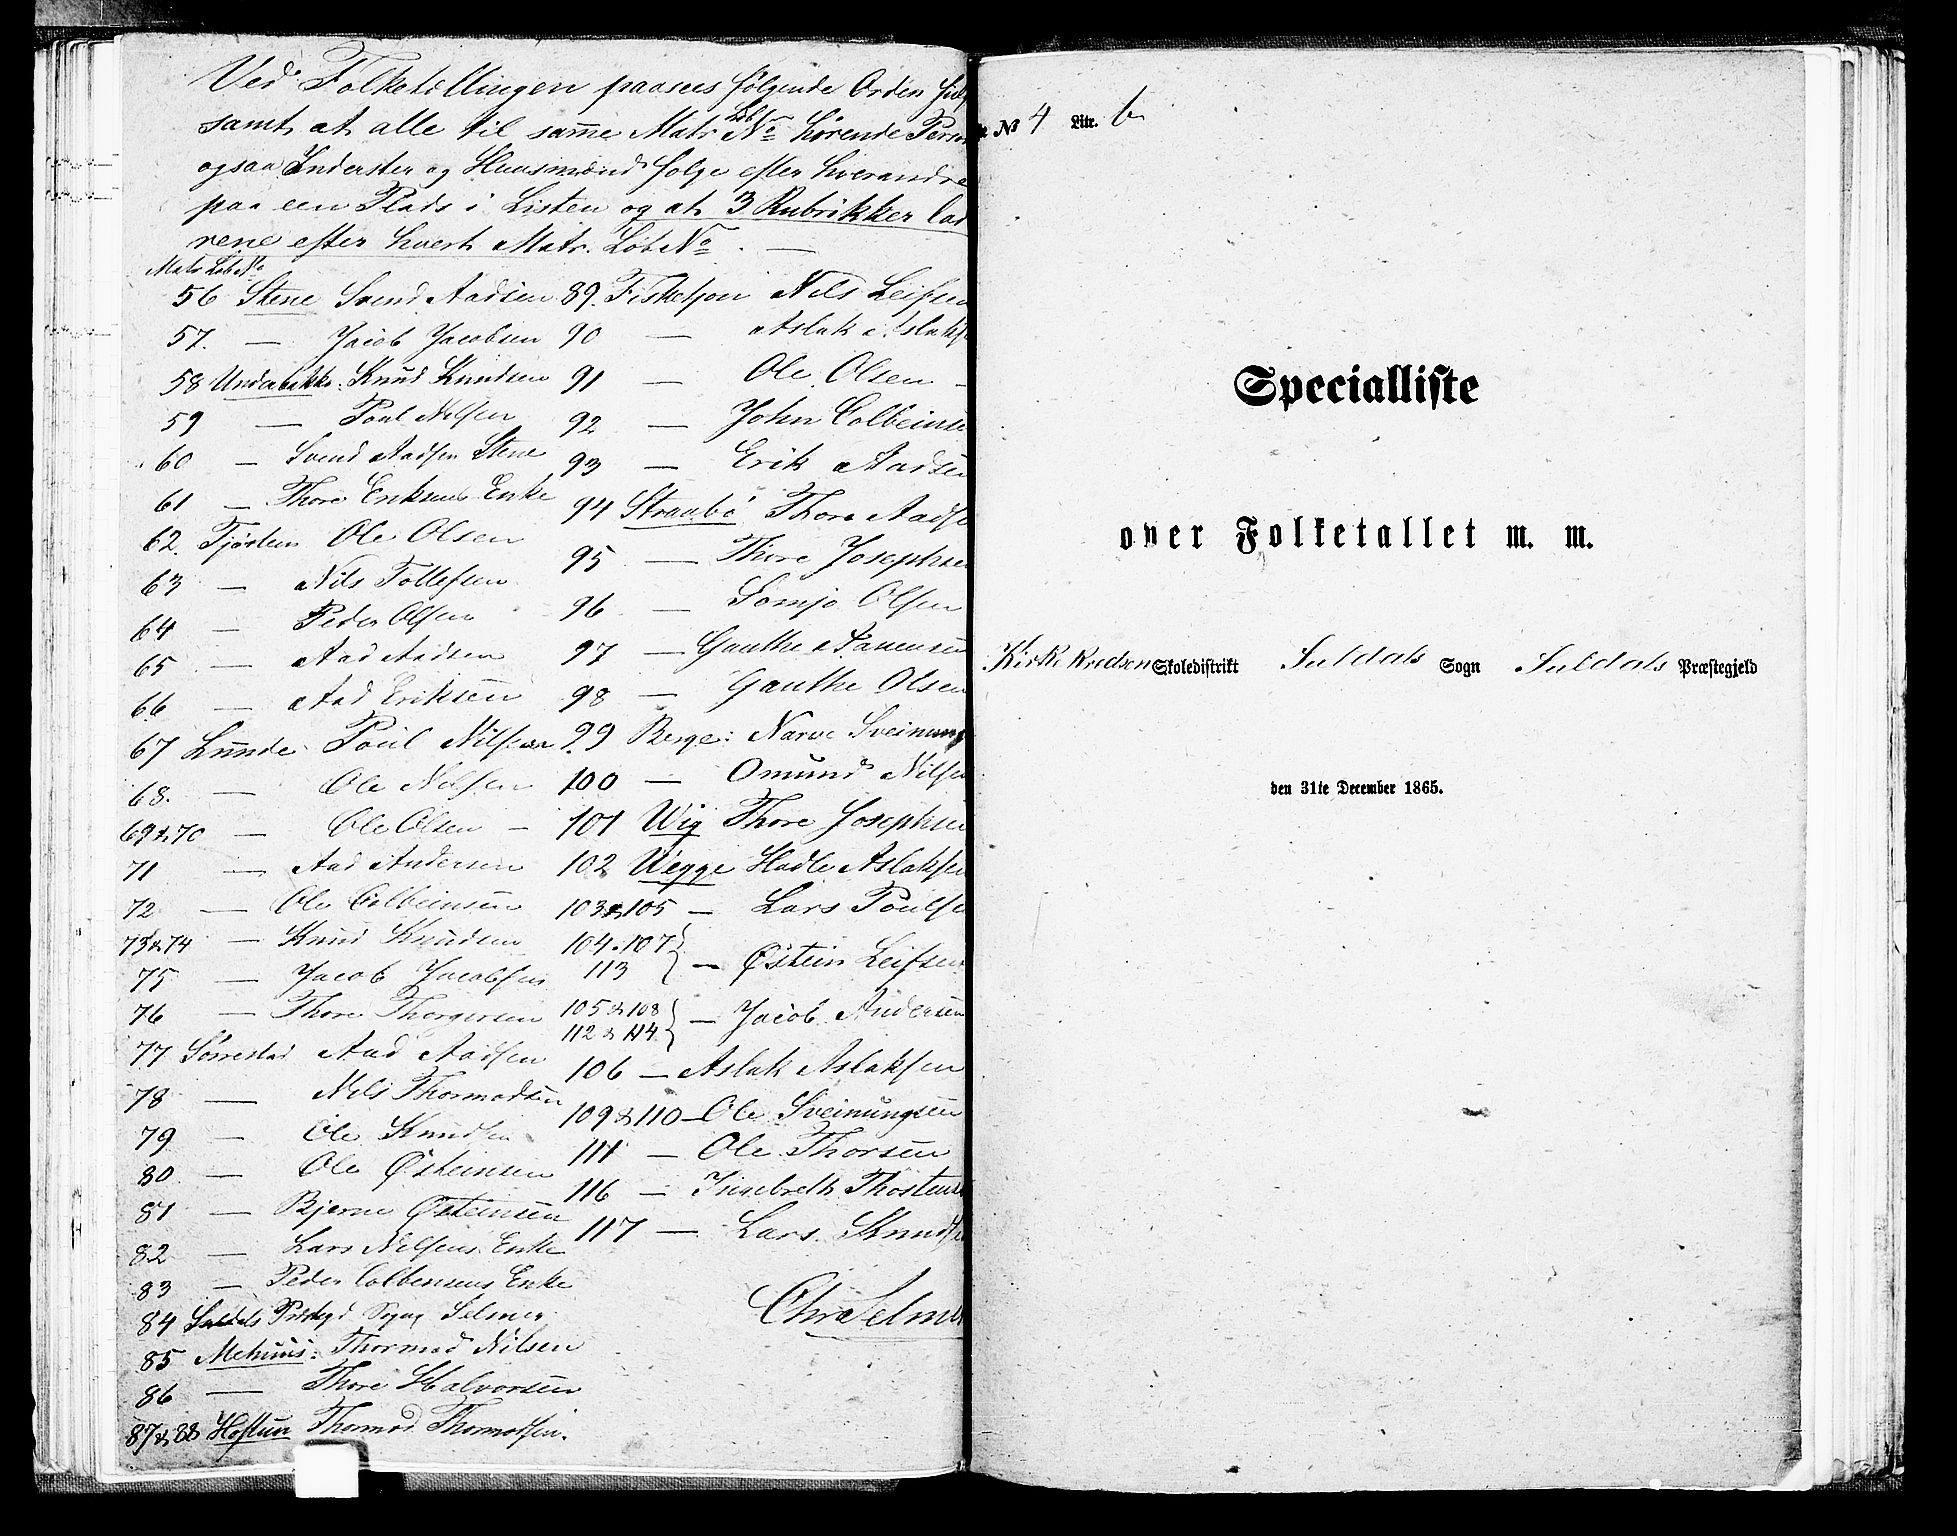 Ved Folketællingen paasees følgende Orden
samt at alle til samme Matr LbNo hørende
ogsaa Inderster og Huusmænd følge efter hverandre
paa een Plads i Listen og at 3 Rubrikker
efter hvert Matr. LøbNo. —
Matr LøbNo
56 Stene Svend Aadsen
57. — Jacob Jacobsen
58 Underbakke: Knud Knudsen
59 — Poul Nilsen
60 — Svend Aadsen Stene
61 — Thore Eriksens Enke
62. Tjøsten Ole Olsen
63 — Nils Tollefsen
64 — Peder Olsen
65 — Aad Aadsen
66 — Aad Eriksen
67 Lunde Poul Nilsen
68. — Ole Nilsen
69 & 70 — Ole Olsen —
71 — Aad Andersen
72 — Ole Colbeinsen
73 & 74 — Knud Knudsen
75 — Jacob Jacobsen
76 — Thore Thorgersen
77 Sørestad Aad Aadsen
78 — Nils Thormodsen
79 — Ole Knudsen
80 — Ole Østeinsen
81 — Bjerne Østeinsen
82 — Lars Nilsens Enke
83 — Peder Colbensens Enke
84 Suldals Selmer
85 Mehuus: Thormod Nilsen
86 — Thore Halvorsen
87 & 88 Hoftun Thormod Thormodsen.
89. Fisketjon Nils Leifsen
90 — Aslak Aslaks
91 — Ole Olsen —
92 — John Colbeinse
93 — Erik Aadsen
94 Straabø Thore Aadse
95 — Thore Josephsen
96 — Somjo Olsen
97 — Gauthe
98 — Gauthe Olsen
99 Berge: Narve Sveinung
100 — Omund Nilsen
101 Wig Thore Josephsen
102 Vegge Hadle Aslaksen
103 & 105 — Lars Poulse
104. 107 } 113 — Østein Leifsen
105 & 108 } 112 & 114 — Jacob Andersen
106 — Aslak Aslaksen
109 & 110 — Ole Sveinungsen
111 — Ole Thorsen
116 — Ingebreth Thostens
117 — Lars Knudse
Chr Selme
No 4 Litr. b
Specialliste
over Folketallet m. m.
Kirke Kredsen Skoledistrikt Suldals Sogn Suldals Præstegjeld
den 31te December 1865.